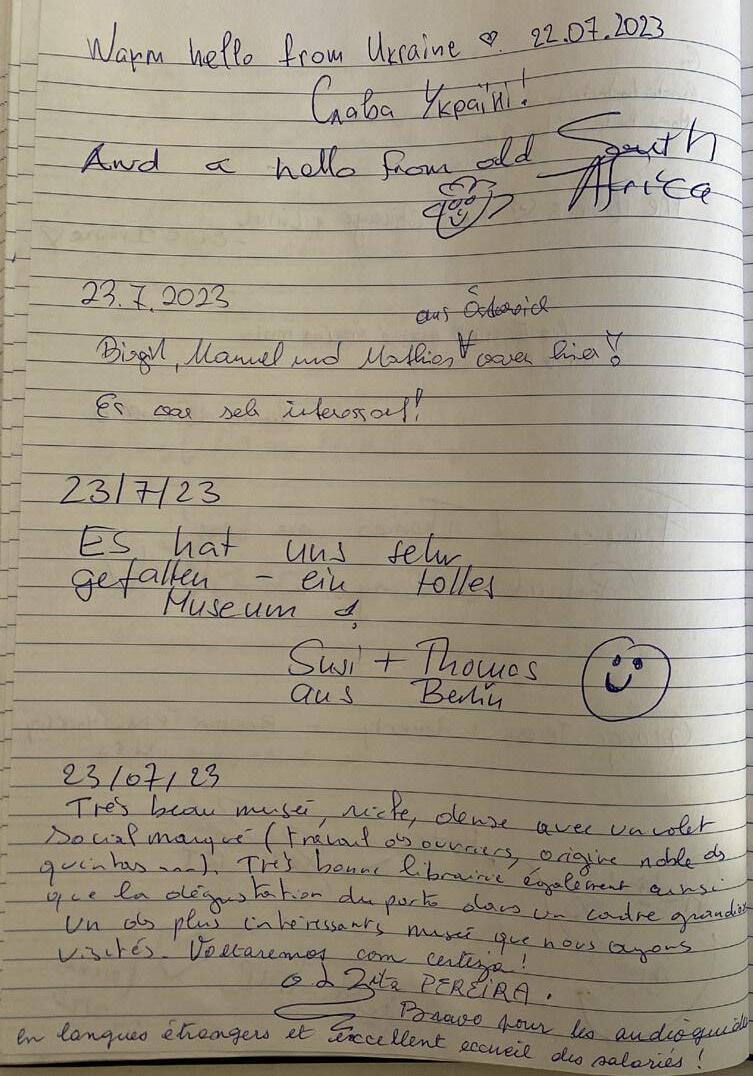 Warm hello from Ukraine ♡. 22.07.2023
Слава Україні!
And a hello from old South
Africa
23.7.2023
aus Österreich
Birgit, Manuel und Mathias waren hier!
Es war sehr interessant!
23/7/23
Es hat uns sehr
gefallen - ein tolles
Museum!
Susi + Thomas
aus Berlin
23/07/23
Très beau musée, riche, dense avec un volet
Social marqué (travail des ouvriers, origine noble des
quintas ...). Très bonne librairie également ainsi
que la dégustation du porto dans un cadre grandiose
Un des plus intéressants musée que nous ayons
visités. Voltaremos com certeza!
Zita PEREIRA.
Bravo pour les audioguides
en langues étrangers et excellent accueil des salariés!